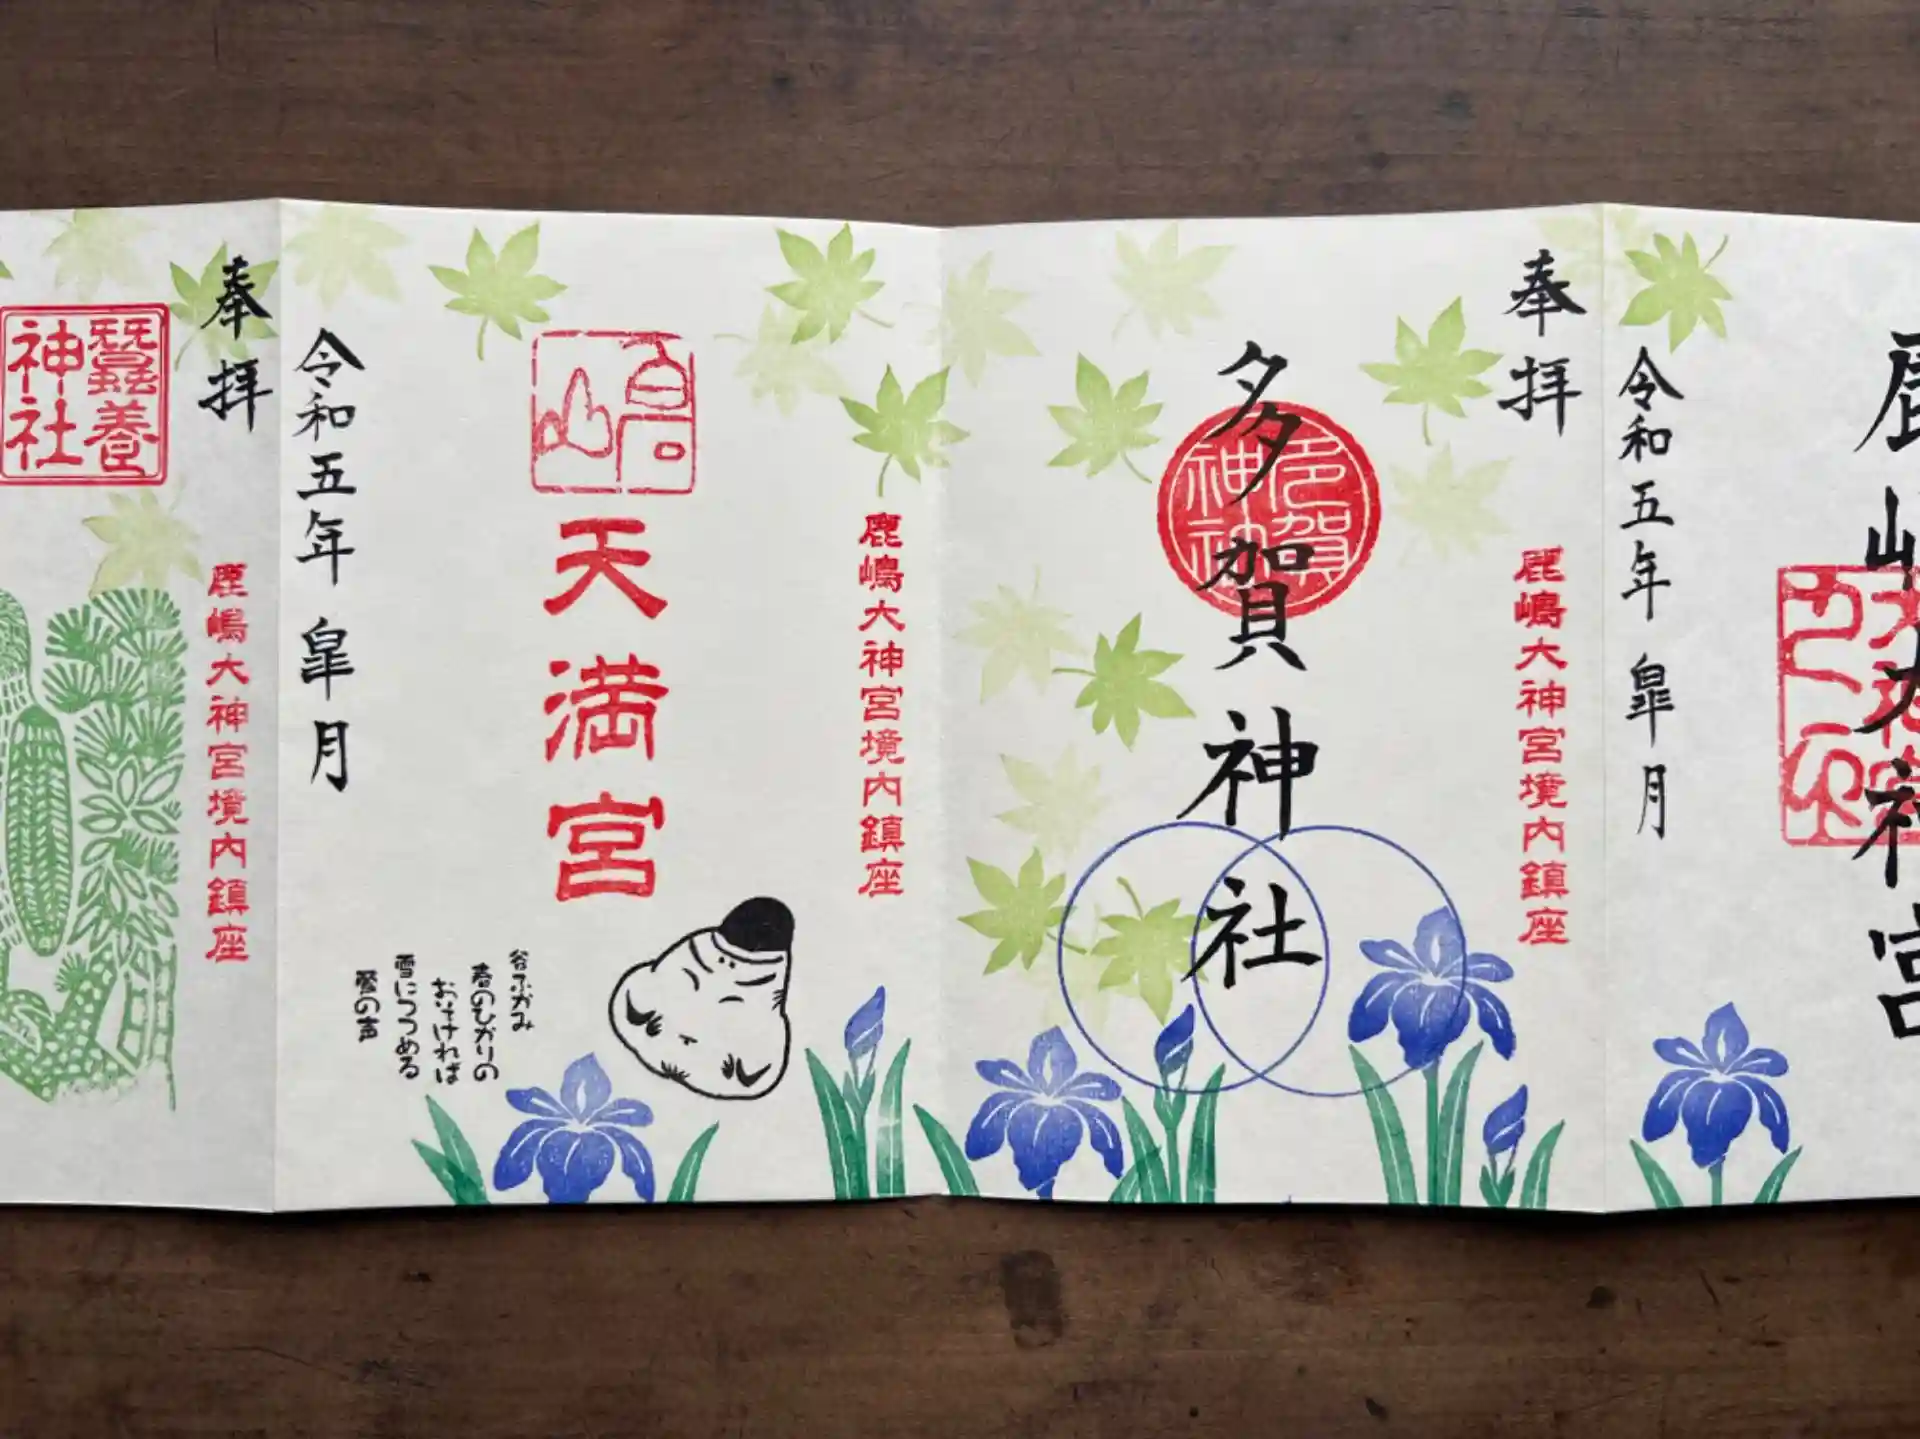 鹿嶋大神宮
令和五年 皐月
奉拝
鹿嶋大神宮境内鎮座
多賀神社
多賀
神社
鹿嶋大神宮境内鎮座
天満宮
谷ふかみ
春のひかりの
おそければ
雪につつめる
鶯の声
令和五年 皐月
奉拝
鹿嶋大神宮境内鎮座
蠶養
神社